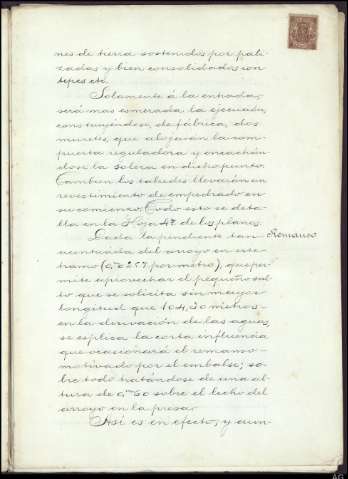 nes de tierra sostenidos por pali-
zadas y bien consolidados con
tepes etc.
Solamente á la entrada,
será mas esmerada la ejecución,
construyéndose, de fábrica, dos
muretes, que alojarán la com-
puerta reguladora y encachán
dose la solera en dicho punto.
Tambien los taludes llevarán un
revestimiento de empedrado en
su comienzo. Todo esto se deta-
lla en la Hoja 4ª de los planos.
Dada la pendiente tan
Remanso
acentuada del arroyo en este
tramo (0,m0257 por metro), que per-
mite aprovechar el pequeño sal-
to que se solicita sin mayor
longitud que 104,30 metros
en la derivación de las aguas,
se esplica la corta influencia
que ocasionará el remanso
motivado por el embalse; so-
bre todo tratándose de una al-
tura de 0,m60 sobre el lecho del
arroyo en la presa.
Asi es en efecto, y cum-
AG